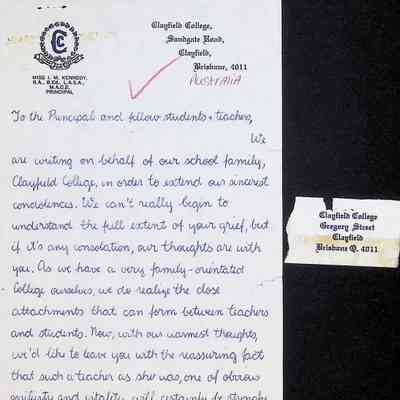 CC
MISS J. M. KENNEDY,
B.A., B.Ed., L.A.S.A.,
M.A.C.E.
PRINCIPAL
Clayfield College,
Sandgate Road,
Clayfield,
Brisbane, 4011
AUSTRALIA
To the Principal and fellow students + teachers,
We
are writing on behalf of our school family,
Clayfield College, in order to extend our sincerest
condolences. We can't really begin to
understand the full extent of your grief, but
if it's any consolation, our thoughts are with
you. As we have a very family-orientated
College ourselves, we do realize the close
attachments that can form between teachers
and students. Now, with our warmest thoughts,
we'd like to leave you with the reassuring fact
that such a teacher as she was, one of obvious
and vitality will certainly be strongly
Clayfield College
Gregory Street
Clayfield
Brisbane Q. 4011